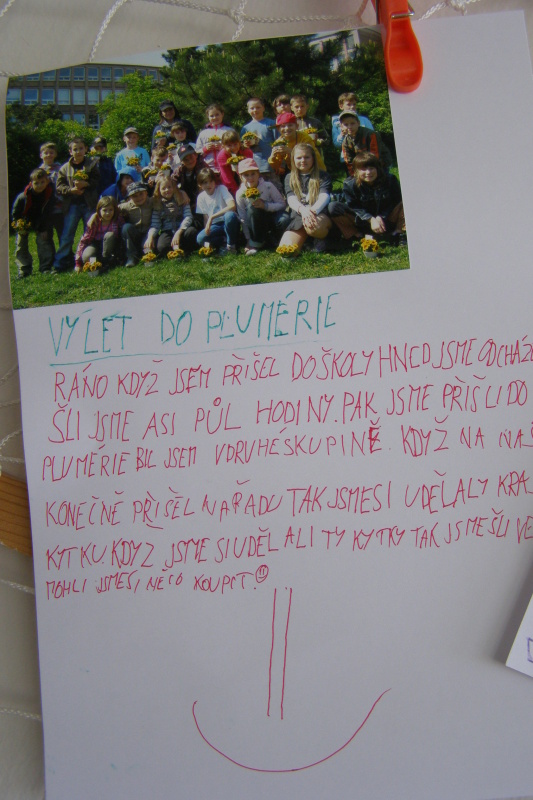 VÝLÉT DO PLUMÉRIE
RÁNO KDYŽ JSEM PŘIŠEL DO ŠKOLY HNED JSME ODCHÁZ
ŠLI JSME ASI PŮL HODINY. PAK JSME PŘIŠLI DO
PLUMÉRIE BIL JSEM V DRUHÉ SKUPINĚ. KDYŽ NA NAŠ
KONEČNĚ PŘIŠEL NAŘADU TAK JSME SI UDĚLALY KRA
KYTKU. KDYŽ JSME SI UDĚLALI TY KYTKY TAK JSME ŠLI VE
MOHLI JSME SI NĚCO KOUPIT.